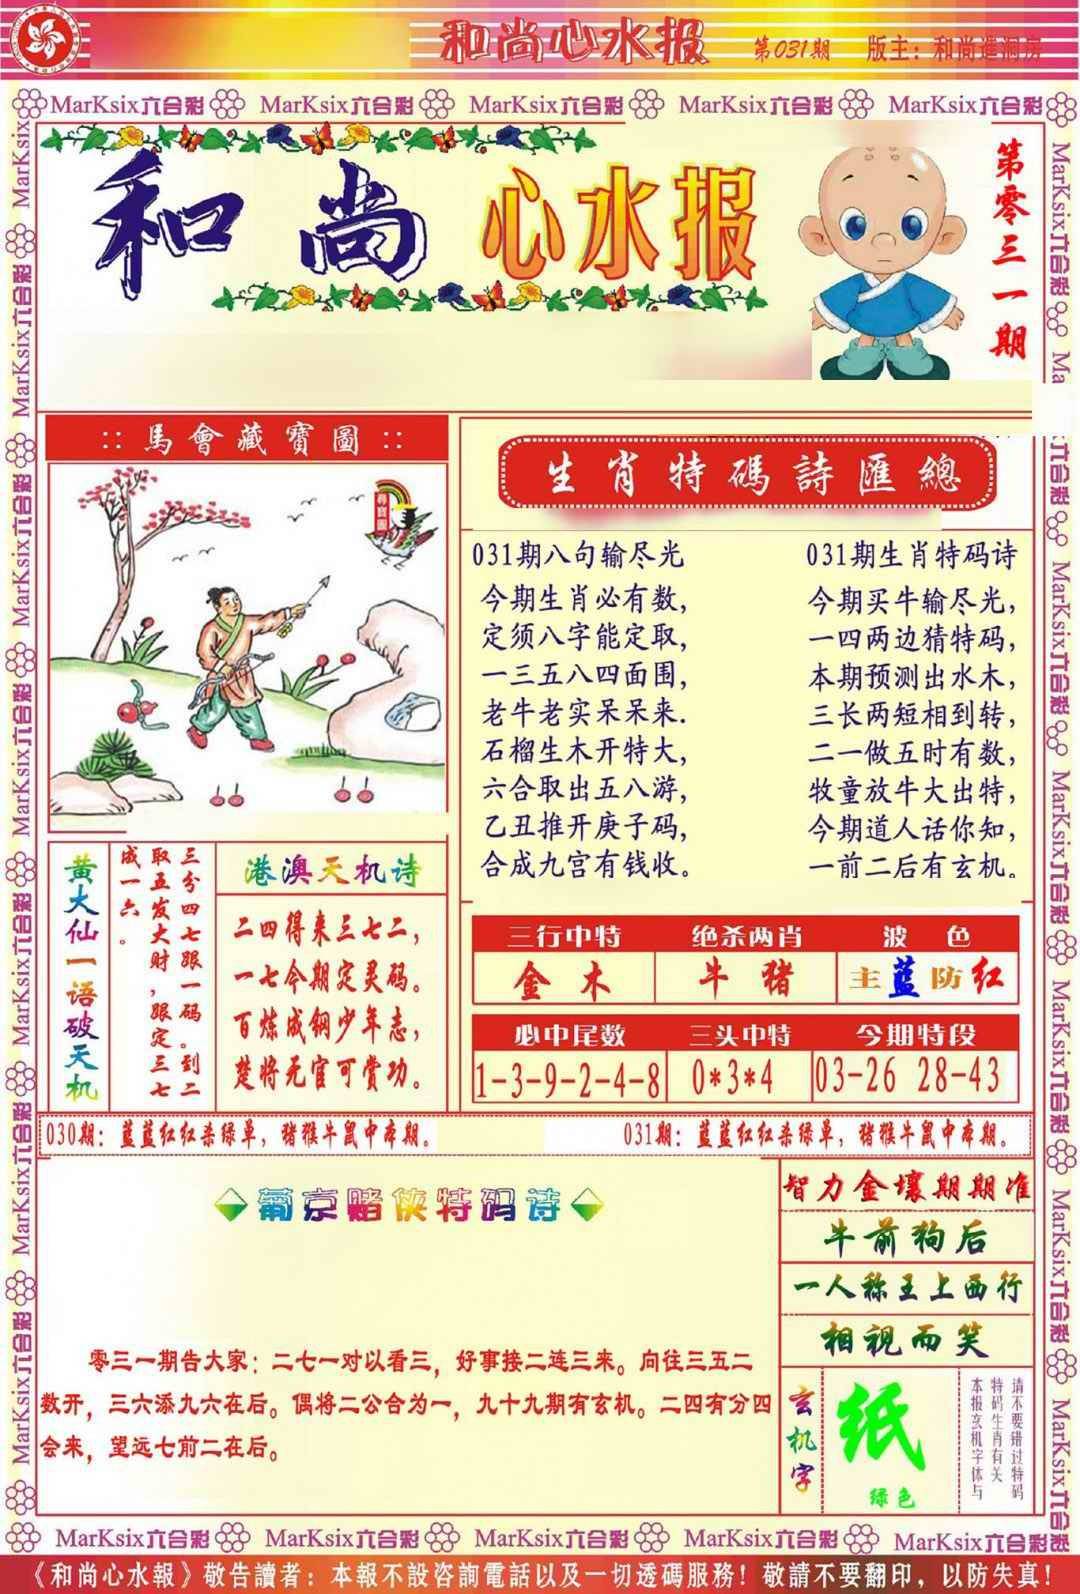 和尚心水报 第031期 版主：和尚進洞房
MarKsix六合彩 MarKsix六合彩 MarKsix六合彩 MarKsix六合彩 MarKsix六合彩
和尚 心水报
第零三一期
:: 馬會藏寶圖 ::
尋寶圖
生肖特碼詩匯總
031期八句输尽光
今期生肖必有数，
定须八字能定取，
一三五八四面围，
老牛老实呆呆来.
石榴生木开特大，
六合取出五八游，
乙丑推开庚子码，
合成九宫有钱收。
031期生肖特码诗
今期买牛输尽光，
一四两边猜特码，
本期预测出水木，
三长两短相到转，
二一做五时有数，
牧童放牛大出特，
今期道人话你知，
一前二后有玄机。
黄大仙一语破天机
三分四七跟一码。到二
取五发大财，跟定三七
成一六。
港澳天机诗
二四得来三七二，
一七今期定灵码。
百炼成钢少年志，
楚将无官可赏功。
三行中特 绝杀两肖 波色
金木 牛猪 主蓝防红
必中尾数 三头中特 今期特段
1-3-9-2-4-8 0*3*4 03-26 28-43
030期：蓝蓝红红杀绿单，猪猴牛鼠中本期。
031期：蓝蓝红红杀绿单，猪猴牛鼠中本期。
葡京赌侠特码诗
零三一期告大家：二七一对以看三，好事接二连三来。向往三五二
数开，三六添九六在后。偶将二公合为一，九十九期有玄机。二四有分四
会来，望远七前二在后。
智力金壤期期准
牛前狗后
一人称王上西行
相视而笑
玄机字
纸
绿色
请不要错过特码
特码生肖有关
本报玄机字体与
MarKsix六合彩 MarKsix六合彩 MarKsix六合彩 MarKsix六合彩 MarKsix六合彩
《和尚心水報》敬告讀者：本報不設咨詢電話以及一切透碼服務！敬請不要翻印，以防失真！